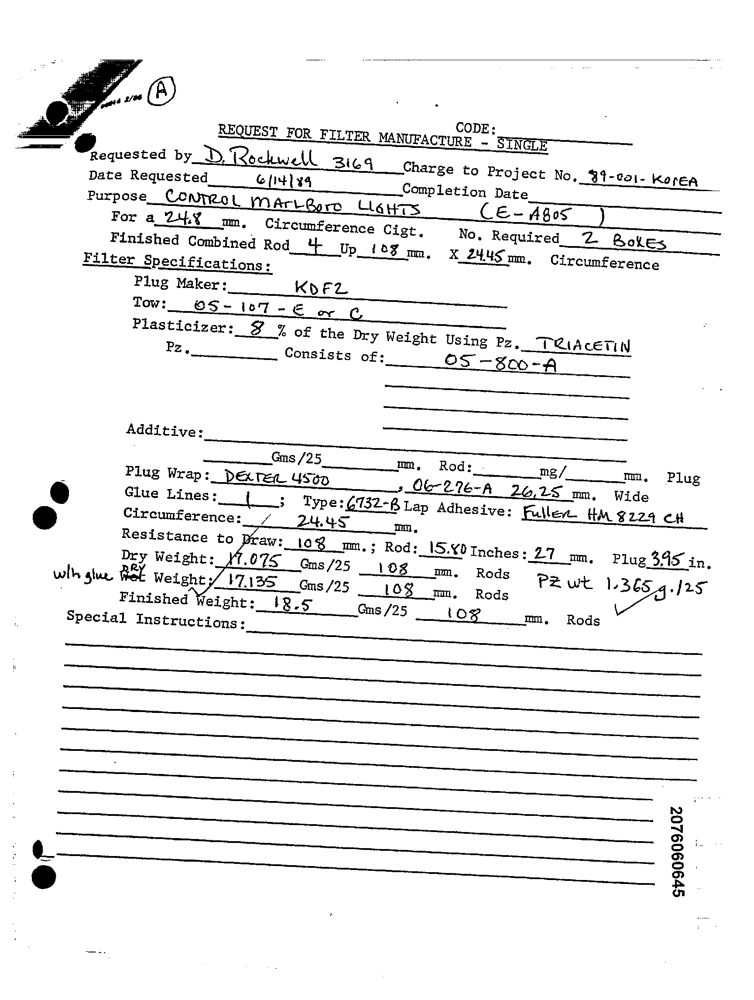 A
CODE:
REQUEST FOR FILTER MANUFACTURE - SINGLE
Requested by D. Rockwell 3169 Charge to Project No. 89-001-KOREA
Date Requested 6/14/89 Completion Date
Purpose CONTROL MARLBORO LIGHTS (E-A805)
For a 24.8 mm. Circumference Cigt. No. Required 2 BOXES
Finished Combined Rod 4 Up 108 mm. X 24.45 mm. Circumference
Filter Specifications:
Plug Maker: KDF2
Tow: 05-107-E or C
Plasticizer: 8 % of the Dry Weight Using Pz. TRIACETIN
Pz. Consists of: 05-800-A
Additive:
Gms/25 mm. Rod: mg/ mm. Plug
Plug Wrap: DEXTER 4500, 06-276-A 26.25 mm. Wide
Glue Lines: 1; Type: 6732-B Lap Adhesive: Fuller HM 8229 CH
Circumference: 24.45 mm.
Resistance to Draw: 108 mm.; Rod: 15.80 Inches: 27 mm. Plug 3.95 in.
Dry Weight: 17.075 Gms/25 108 mm. Rods
w/h glue DRY Wet Weight: 17.135 Gms/25 108 mm. Rods PZ wt 1.365 g./25
Finished Weight: 18.5 Gms/25 108 mm. Rods
Special Instructions:
2076060645